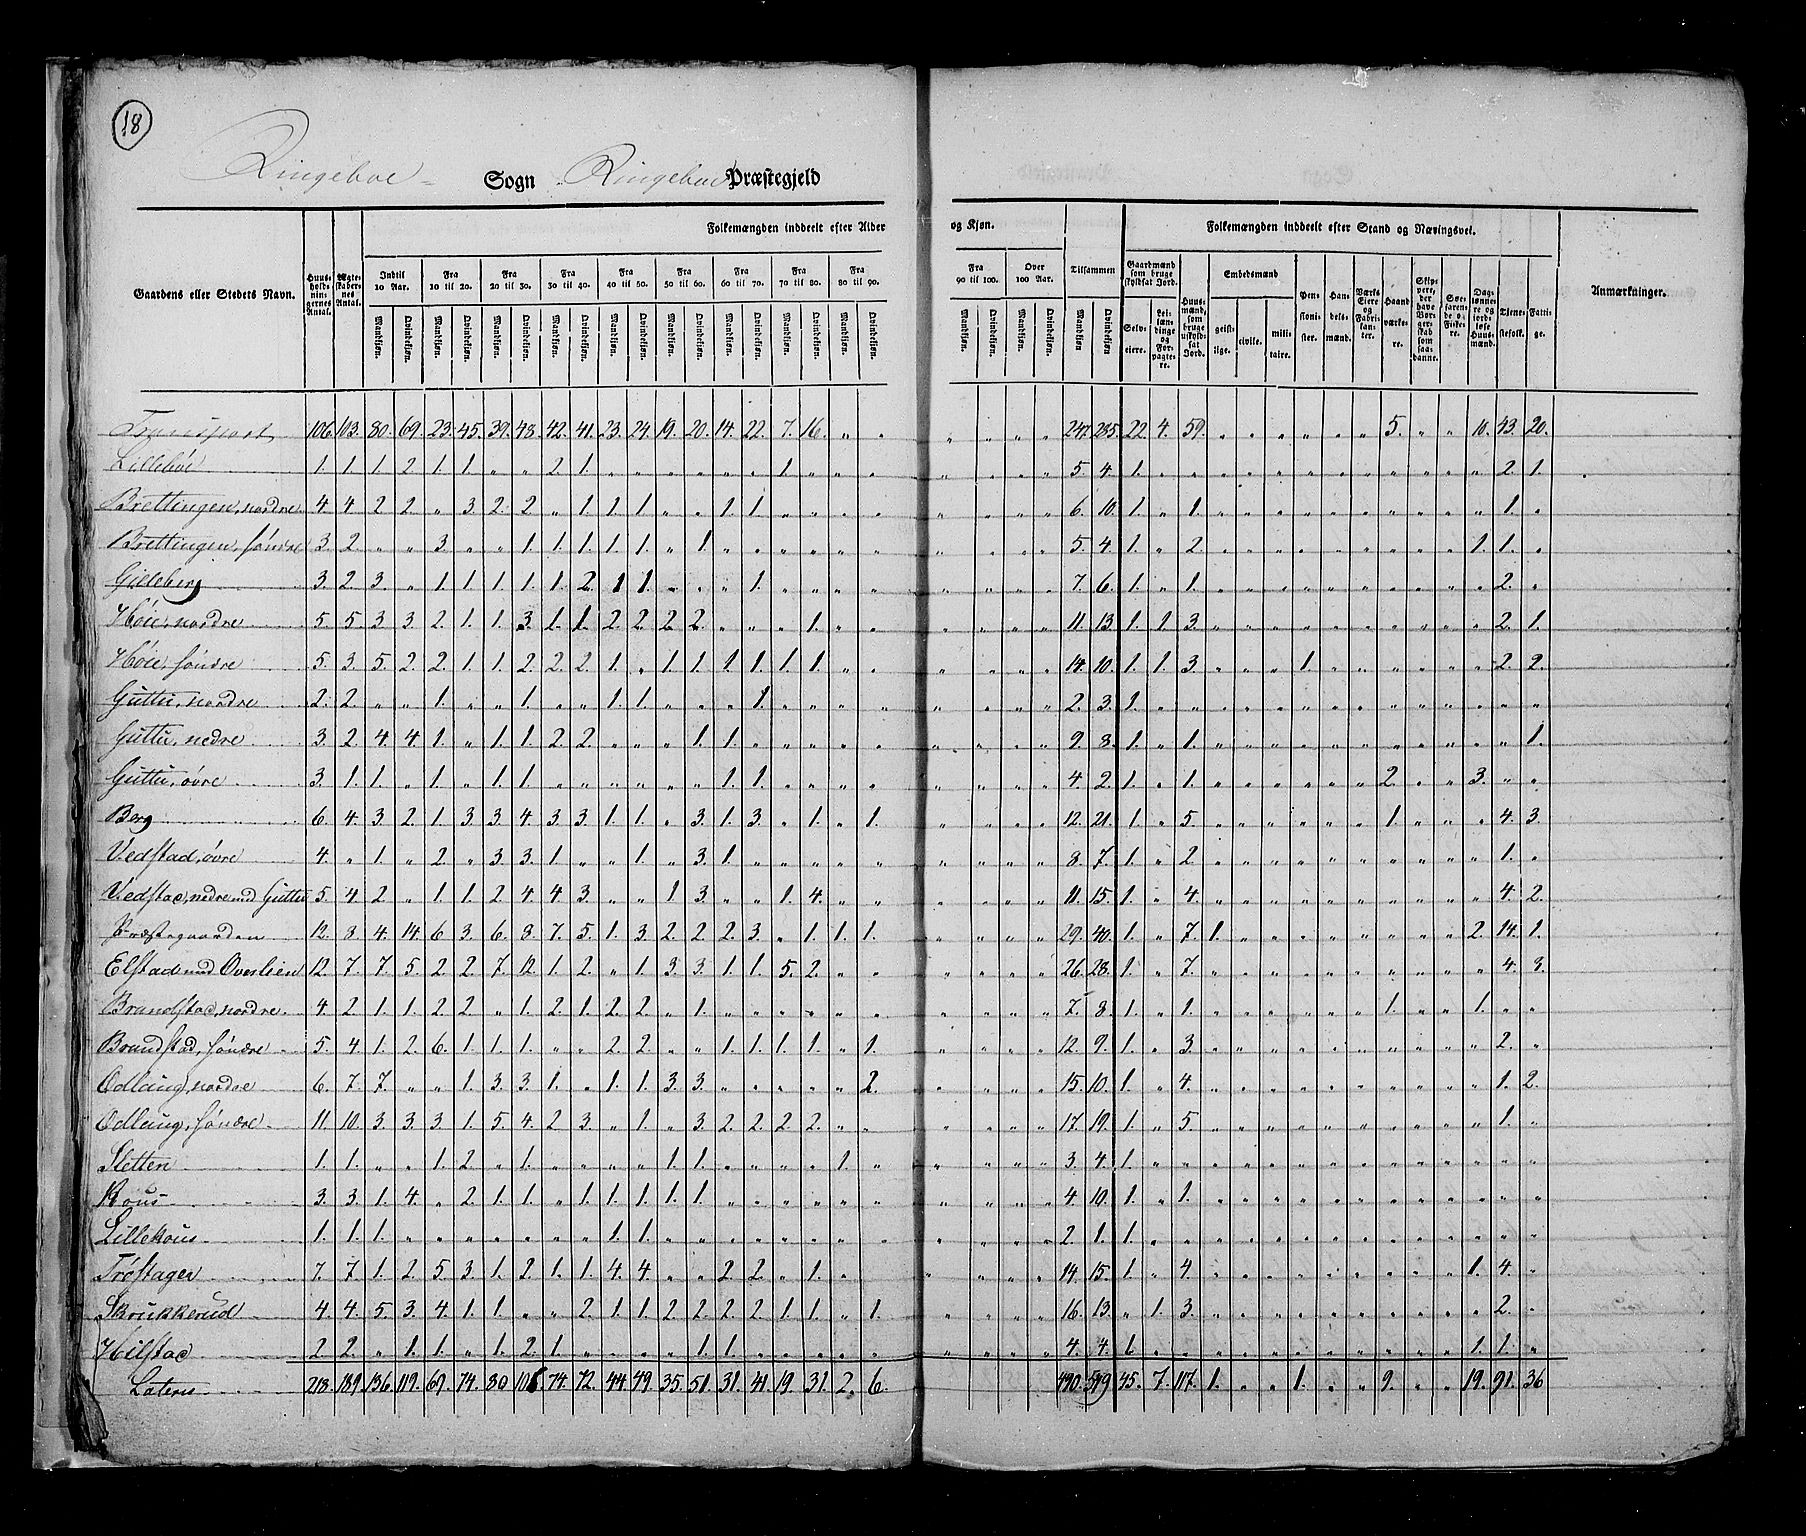 18
Ringeboe Sogn Ringeboe Præstegjeld
Gaardens eller Stedets Navn.
Huus-holdnin-gernes Antal.
Ægte-skabernes Antal.
Folkemængden inddeelt efter Alder og Kjøn.
Indtil 10 Aar.
Fra 10 til 20.
Fra 20 til 30.
Fra 30 til 40.
Fra 40 til 50.
Fra 50 til 60.
Fra 60 til 70.
Fra 70 til 80.
Fra 80 til 90.
Fra 90 til 100.
Over 100 Aar.
Tilsammen
Mandkjøn. Qvindekjøn.
Folkemængden inddeelt efter Stand og Næringsvei.
Gaardmænd som bruge skyldsat Jord.
Selv-eiere.
Leilændinge og Forpagtere.
Huusmænd, som bruge uskyldsat Jord.
Embedsmænd
geist-lige.
civile.
mili-taire.
Pen-sioni-ster.
Han-dels-mænd.
Værks-Eiere og Fabri-kanter.
Haand-værke-re.
Skippere, der have Borgerskab som saadanne.
Søe-farende og Fiskere.
Dag-lønne-re og jord-løse Huus-mænd.
Tjene-stefolk.
Fatti-ge.
Anmærkninger.
Transport 106. 103. 80. 69. 23. 45. 39. 48. 42. 41. 23. 24. 19. 20. 14. 22. 7. 16. „ „ „ „ „ „ 247. 285. 22. 4. 59. „ „ „ „ „ „ 5. „ „ 10. 43. 20.
Lillebøe 1. 1. 1. 2. 1. 1. „ „ 2. 1. „ „ „ „ „ „ 1. „ „ „ „ „ „ „ 5. 4. 1. „ „ „ „ „ „ „ „ „ „ „ „ 2. 1.
Brettingen, nordre 4. 4. 2. 2. „ 3. 2. 2. „ 1. 1. 1. „ „ 1. 1. „ „ „ „ „ „ „ „ 6. 10. 1. „ 1. „ „ „ „ „ „ „ „ „ „ 1. „
Brettingen, søndre 3. 2. „ „ 3. „ „ 1. 1. 1. 1. 1. „ 1. „ „ „ „ „ „ „ „ „ „ 5. 4. 1. „ 2. „ „ „ „ „ „ „ „ „ 1. 1. „
Gilleberg 3. 2. 3. „ 1. 1. 1. 1. 1. 2. 1 1. „ „ „ 1. „ „ „ „ „ „ „ „ 7. 6. 1. „ 1. „ „ „ „ „ „ „ „ „ „ 2. „
Høie, nordre 5. 5. 3. 3. 2. 1. 1. 3. 1. 1. 2. 2. 2. 2. „ „ „ 1. „ „ „ „ „ „ 11. 13. 1. 1. 3. „ „ „ „ „ „ „ „ „ „ 2. 1.
Høie, søndre 5. 3. 5. 2. 2. 1. 1. 2. 2. 2. 1. „ 1. 1. 1. 1. 1. 1. „ „ „ „ „ „ 14. 10. 1. 1. 3. „ „ „ 1. „ „ „ „ „ „ 2. 2.
Guttu, nordre 2. 2. „ „ 1. „ „ 1. „ „ 1. 1. „ „ „ 1. „ „ „ „ „ „ „ „ 2. 3. 1. „ „ „ „ „ „ „ „ „ „ „ „ „ „
Guttu, nedre 3. 2. 4. 4. 1. „ 1. 1. 2. 2. „ „ „ 1. 1. „ „ „ „ „ „ „ „ „ 9. 8. 1. „ 1. „ „ „ „ „ „ „ „ „ „ „ 1.
Guttu, øvre 3. 1. 1. „ 1. „ 1. 1. „ „ „ „ „ „ 1. 1. „ „ „ „ „ „ „ „ 4. 2. 1. „ 1. „ „ „ „ „ „ 2. „ „ 3. „ „
Berg 6. 4. 3. 2. 1. 3. 3. 4. 3. 3. 1. 1. „ 3. 1. 3. „ 1. „ 1. „ „ „ „ 12. 21. 1. „ 5. „ „ „ „ „ „ 1. „ „ „ 4. 3.
Vedstad, øvre 4. „ 1. „ 2. „ 3. 3. 1. „ „ 1. „ 3. 1. „ „ „ „ „ „ „ „ „ 8. 7. 1. „ 2. „ „ „ „ „ „ „ „ „ „ 1. „
Vedstad, nedre med Guttu 5. 4. 2. „ 1. 1. 2. 4. 4. 3. „ „ 1. 3. „ „ 1. 4. „ „ „ „ „ „ 11. 15. 1. „ 4. „ „ „ „ „ „ „ „ „ „ 4. 2.
Præstegaarden 12. 8. 4. 14. 6. 3. 6. 8. 7. 5. 1. 3. 2. 2. 2. 3. „ 1. 1. 1. „ „ „ „ 29. 40. 1. „ 7. 1. „ „ „ „ „ „ „ „ 2. 14. 1.
Elstad med Overlien 12. 7. 7. 5. 2. 2. 7. 12. 1. 2. „ 1. 3. 3. 1. 1. 5. 2. „ „ „ „ „ „ 26. 28. 1. „ 7. „ „ „ „ „ „ „ „ „ „ 4. 3.
Brandstad, nordre 4. 2. 1. 1. 2. 2. „ 1. 2. 1. 2. 2. „ 1. „ „ „ „ „ „ „ „ „ „ 7. 8. 1. „ 1. „ „ „ „ „ „ 1. „ „ 1. „ „
Brandstad, søndre 5. 4. 1. 2. 6. 1. 1. 1. „ „ 2. 2. „ „ 1. 1. 1. 1. „ 1. „ „ „ „ 12. 9. 1. „ 3. „ „ „ „ „ „ „ „ „ „ 2. „
Odlaug, nordre 6. 7. 7. „ „ 1. 3. 3. 1. „ 1. 1. 3. 3. „ „ „ „ „ 2. „ „ „ „ 15. 10. 1. „ 4. „ „ „ „ „ „ „ „ „ „ 1. 2.
Odlaug, søndre 11. 10. 3. 3. 3. 1. 5. 4. 2 3. „ 1. „ 3. 2. 2. 2. 2. „ „ „ „ „ „ 17. 19. 1. „ 5. „ „ „ „ „ „ „ „ „ „ 1. „
Sletten 1. 1. „ „ 1. 2. „ 1. „ „ „ „ 1. 1. „ „ „ „ 1. „ „ „ „ „ 3. 4. 1. „ „ „ „ „ „ „ „ „ „ „ „ „ „
Rous 3. 3. 1. 4. „ 2. 1. 1. „ 1. 1. 1. 1. 1. „ „ „ „ „ „ „ „ „ „ 4. 10. 1. „ 1. „ „ „ „ „ „ „ „ „ „ „ „
Lillerous 1. 1. 1. „ „ „ „ „ „ „ 1. 1. „ „ „ „ „ „ „ „ „ „ „ „ 2. 1. 1. „ „ „ „ „ „ „ „ „ „ „ „ „ „
Trøstager 7. 7. 1. 2. 5. 3. 1. 2. 1. 1. 4. 4. „ „ 2. 2. „ 1. „ „ „ „ „ 14. 15. 1. „ 4. „ „ „ „ „ „ „ „ „ 1. 4. „
Skrukkerud 4. 4. 5. 3. 4. 1. 1. „ „ 2. 1. 1. 2. 2. 2. 2. 1. 1. „ 1. „ „ „ „ 16. 13. „ 1. 3. „ „ „ „ „ „ „ „ „ „ 2. „
Hilstad 2. 2. „ 1. 1. „ 1. 2. 1. „ „ „ „ 1. 1. „ „ „ „ „ „ „ „ „ 4. 4. 1. „ „ „ „ „ „ „ „ „ „ „ 1. 1. „
Lateris 218. 189. 136. 119. 69. 74. 80 106. 74. 72. 44. 49. 35. 51. 31. 41. 19. 31. 2. 6. 490. 549. 45. 7. 117. 1. „ „ 1. „ „ 9. „ „ 19. 91. 36